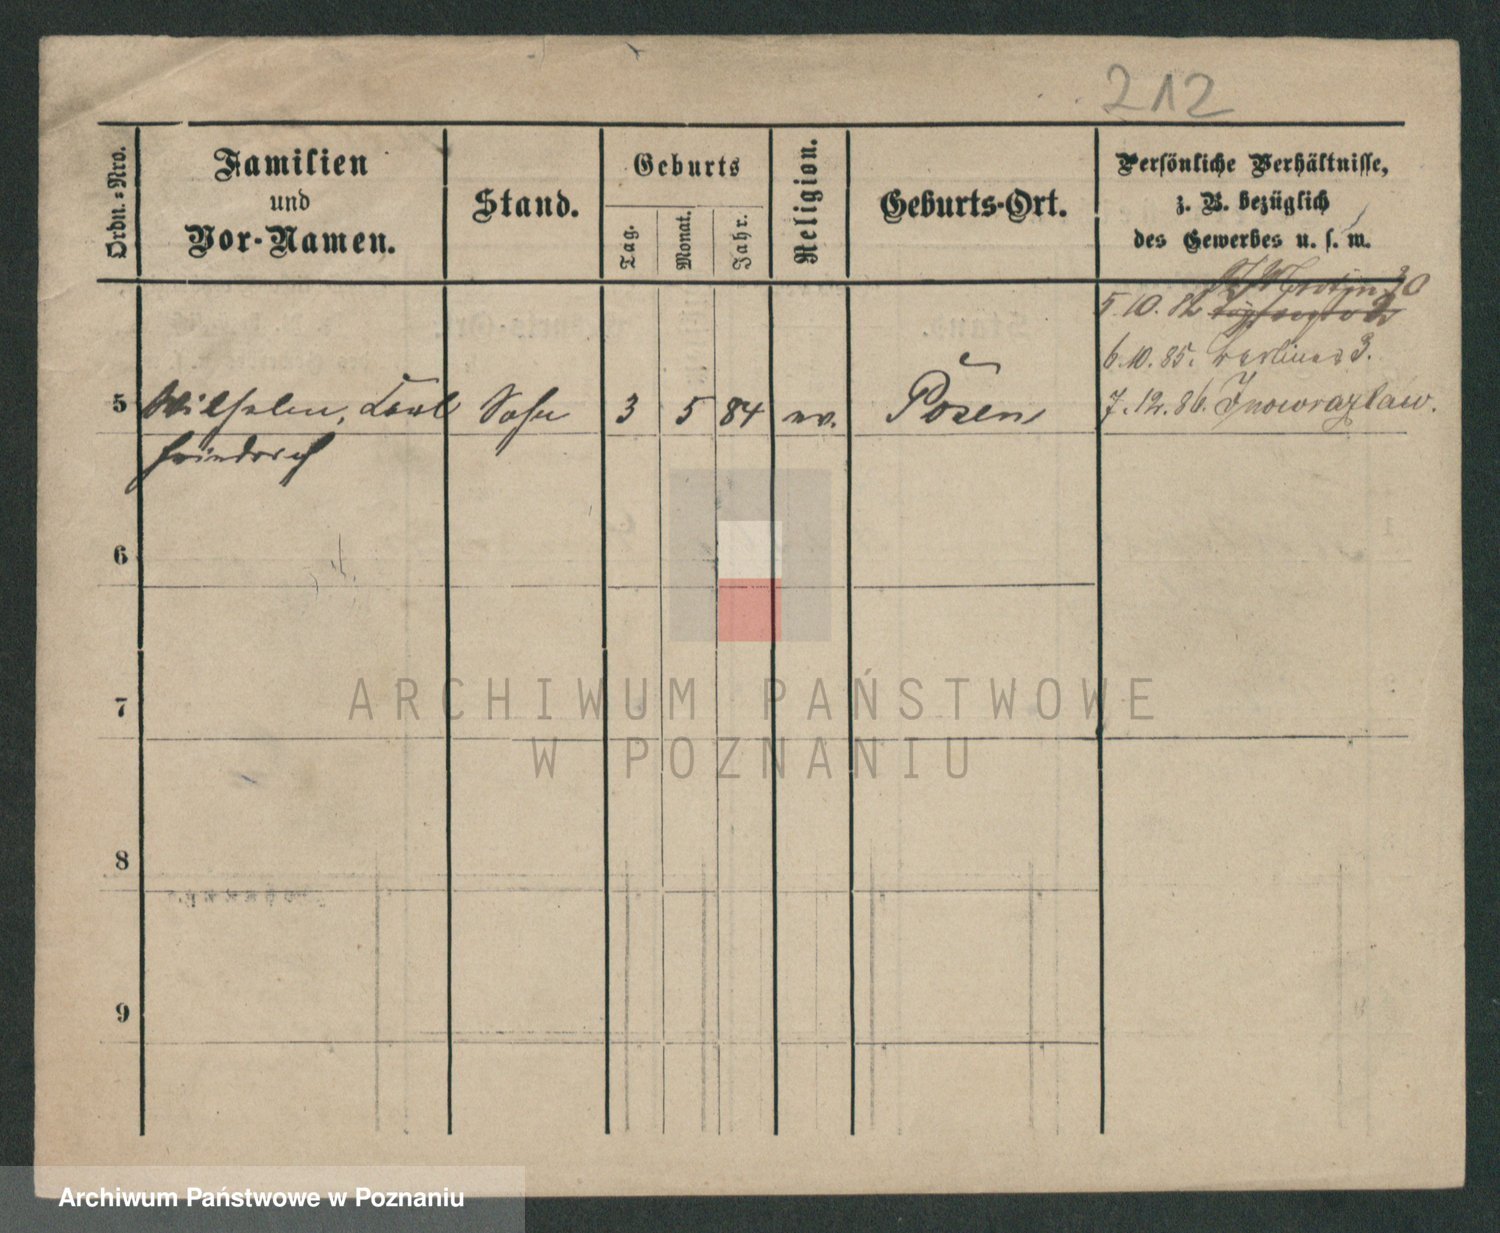 212
Ordn.-Nro.
Familien
und
Vor-Namen.
Stand.
Geburts
Tag.
Monat.
Jahr.
Religion.
Geburts-Ort.
Persönliche Verhältnisse,
z. B. bezüglich
des Gewerbes u. s. w.
St. Martin 30
5.10.82
6.10.85. Berliner 3.
5 Wilhelm, Carl Sohn 3 5 84 ev. Posen 7.12.86. Inowrazlaw.
Friedrich
6
7
8
9
ARCHIWUM PAŃSTWOWE
W POZNANIU
Archiwum Państwowe w Poznaniu